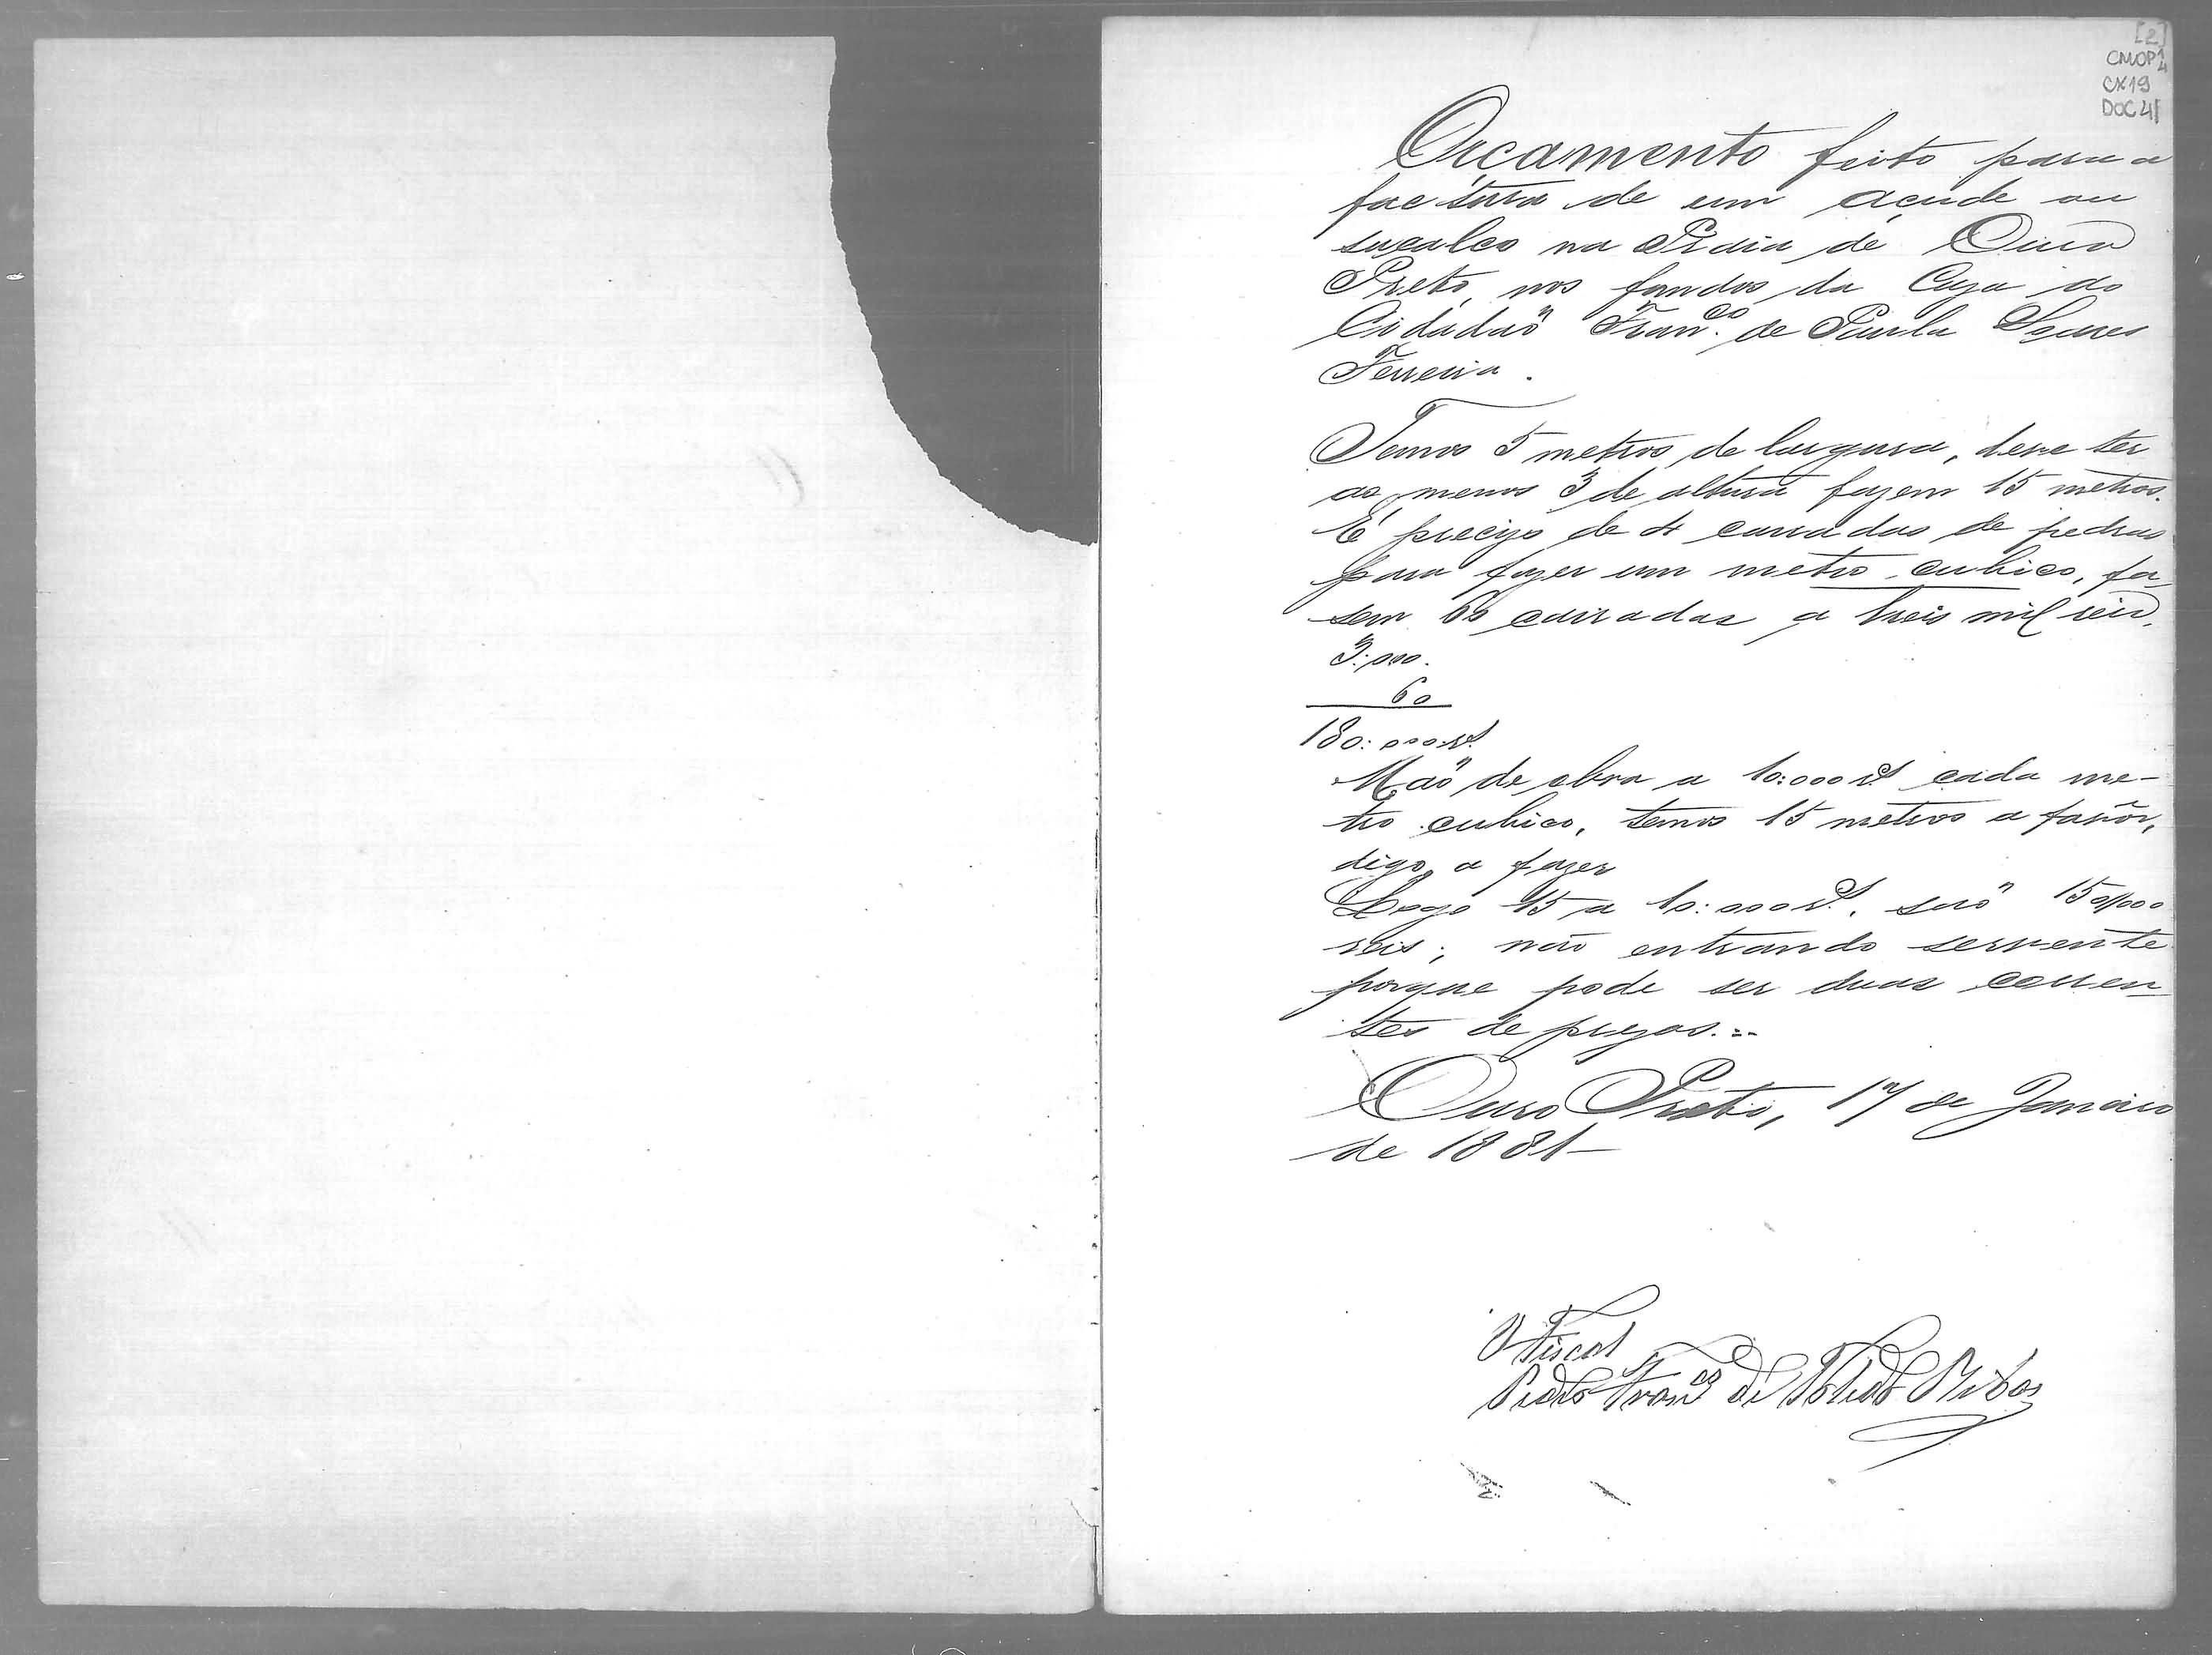 [2]
CMOP 1/4
CX19
DOC 41
Orçamento feito para a
factura de um açude ou
sucalco na Praia de Ouro
Preto, nos fundos da Caza do
Cidadaõ Fran.co de Paula Soares
Ferreira.
Temos 5 metros de largura, deve ter
ao menos 3 de altura fazem 15 metros.
É precizo de 4 carradas de pedras
para fazer um metro cubico, fa-
sem 60 carradas a treis mil reis.
3:000.
60
180:000 rs.
Maõ de obra a 10:000 rs cada me-
tro cubico, temos 15 metros a
digo, a fazer
Logo 15 a 10:000 rs. saõ 150/000
reis; não entrando servente
porque pode ser duas corren-
tes de prezos.=
Ouro Preto, 17 de Janeiro
de 1881-
O Fiscal
Pedro Fran.co de Toledo Ribas